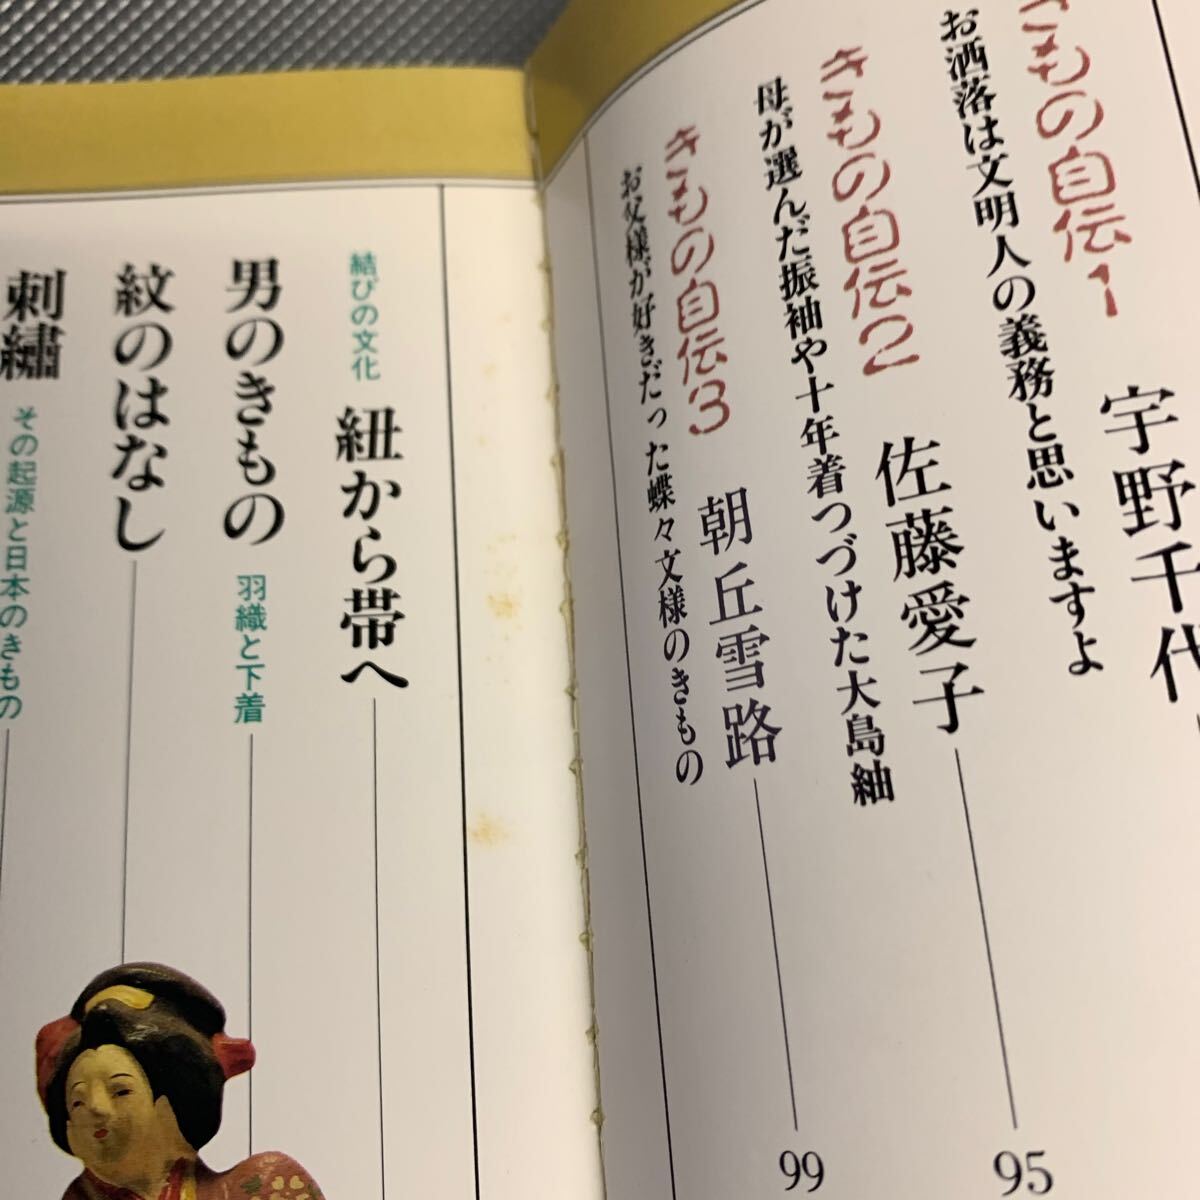 きもの自伝1
お洒落は文明人の義務と思いますよ
宇野千代
きもの自伝2
母が選んだ振袖や十年着つづけた大島紬
佐藤愛子
95
きもの自伝3
お父様が好きだった蝶々文様のきもの
朝丘雪路
99
結びの文化
紐から帯へ
男のきもの
羽織と下着
紋のはなし
刺繡
その起源と日本のきもの